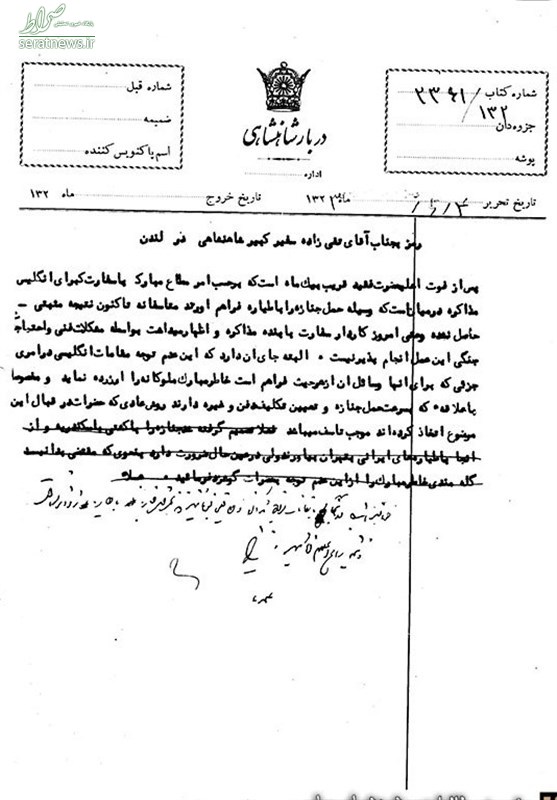 صراط
پایگاه خبری تحلیلی
seratnews.ir
شماره کتاب ۲۳۶۱
جزوه‌دان ۱۳۲
پوشه
شماره قبل
ضمیمه
اسم پاکنویس کننده
دربار شاهنشاهی
اداره
تاریخ تحریر ماه ۱۳۲
تاریخ خروج ماه ۱۳۲
رمز بجناب آقای تقی زاده سفیر کبیر شاهنشاهی در لندن
پس از فوت اعلیحضرت فقید قریب یکماه است که برحسب امر مطاع مبارک با سفارت کبرای انگلیس
مذاکره در میان است که وسیله حمل جنازه را با طیاره فراهم آورند متاسفانه تاکنون نتیجه مثبتی -
حاصل نشده وحتی امروز کاردار سفارت با بنده مذاکره و اظهار میداشت بواسطه مشکلات فنی واحتیاجات
جنگی این عمل انجام پذیر نیست ۰ البته جای آن دارد که این عدم توجه مقامات انگلیسی در امری
جزئی که برای آنها وسائل آن از هر حیث فراهم است خاطر مبارک ملوکانه را آزرده نماید و مخصوصا
با علاقه که بسرعت حمل جنازه و تعیین تکلیف دفن و غیره دارند روش عادی که حضرات در قبال این
موضوع اتخاذ کرده‌اند موجب تاسف میباشد فعلا تصمیم گرفته شد جنازه را با کشتی باسکندریه و از
آنجا با طیاره‌های ایرانی بطهران بیاورند ولی در عین حال ضرورت دارد بنحوی که مقتضی بدانید
گله مندی خاطر مبارک را از این عدم توجه بحضرات گوشزد فرمائید ۰